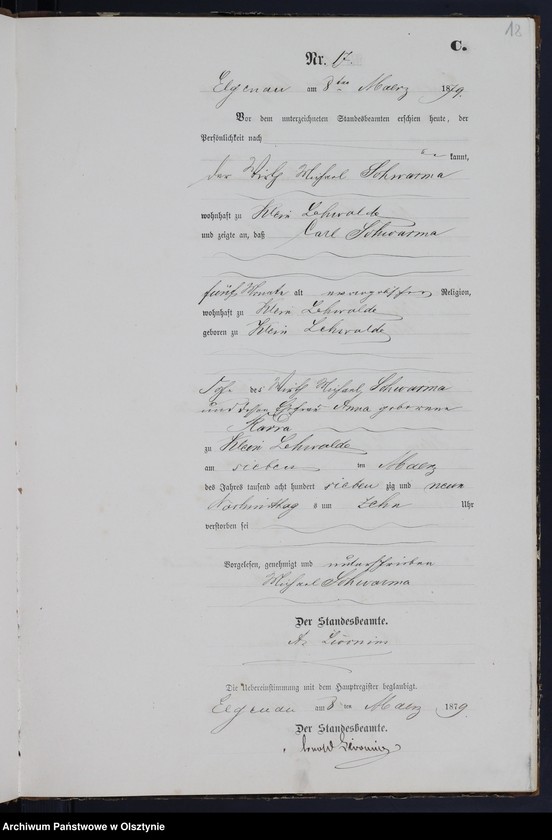 18
C.
Nr. 17.
Elgenau am 8ten Maerz 1879.
Vor dem unterzeichneten Standesbeamten erschien heute, der
Persönlichkeit nach
kannt,
der Wirth Michael Schwarma
wohnhaft zu Klein Lehwalde
und zeigte an, daß Carl Schwarma
fünf Monate alt evangelischer Religion,
wohnhaft zu Klein Lehwalde
geboren zu Klein Lehwalde
Sohn des Wirth Michael Schwarma
und dessen Ehefrau Anna geborene
Karra
zu Klein Lehwalde
am sieben ten Maerz
des Jahres tausend acht hundert sieben zig und neun
Nachmittag s um zehn Uhr
verstorben sei
Vorgelesen, genehmigt und unterschrieben
Michael Schwarma
Der Standesbeamte.
Die Uebereinstimmung mit dem Hauptregister beglaubigt.
Elgenau am 8 ten Maerz 1879
Der Standesbeamte.
Archiwum Państwowe w Olsztynie